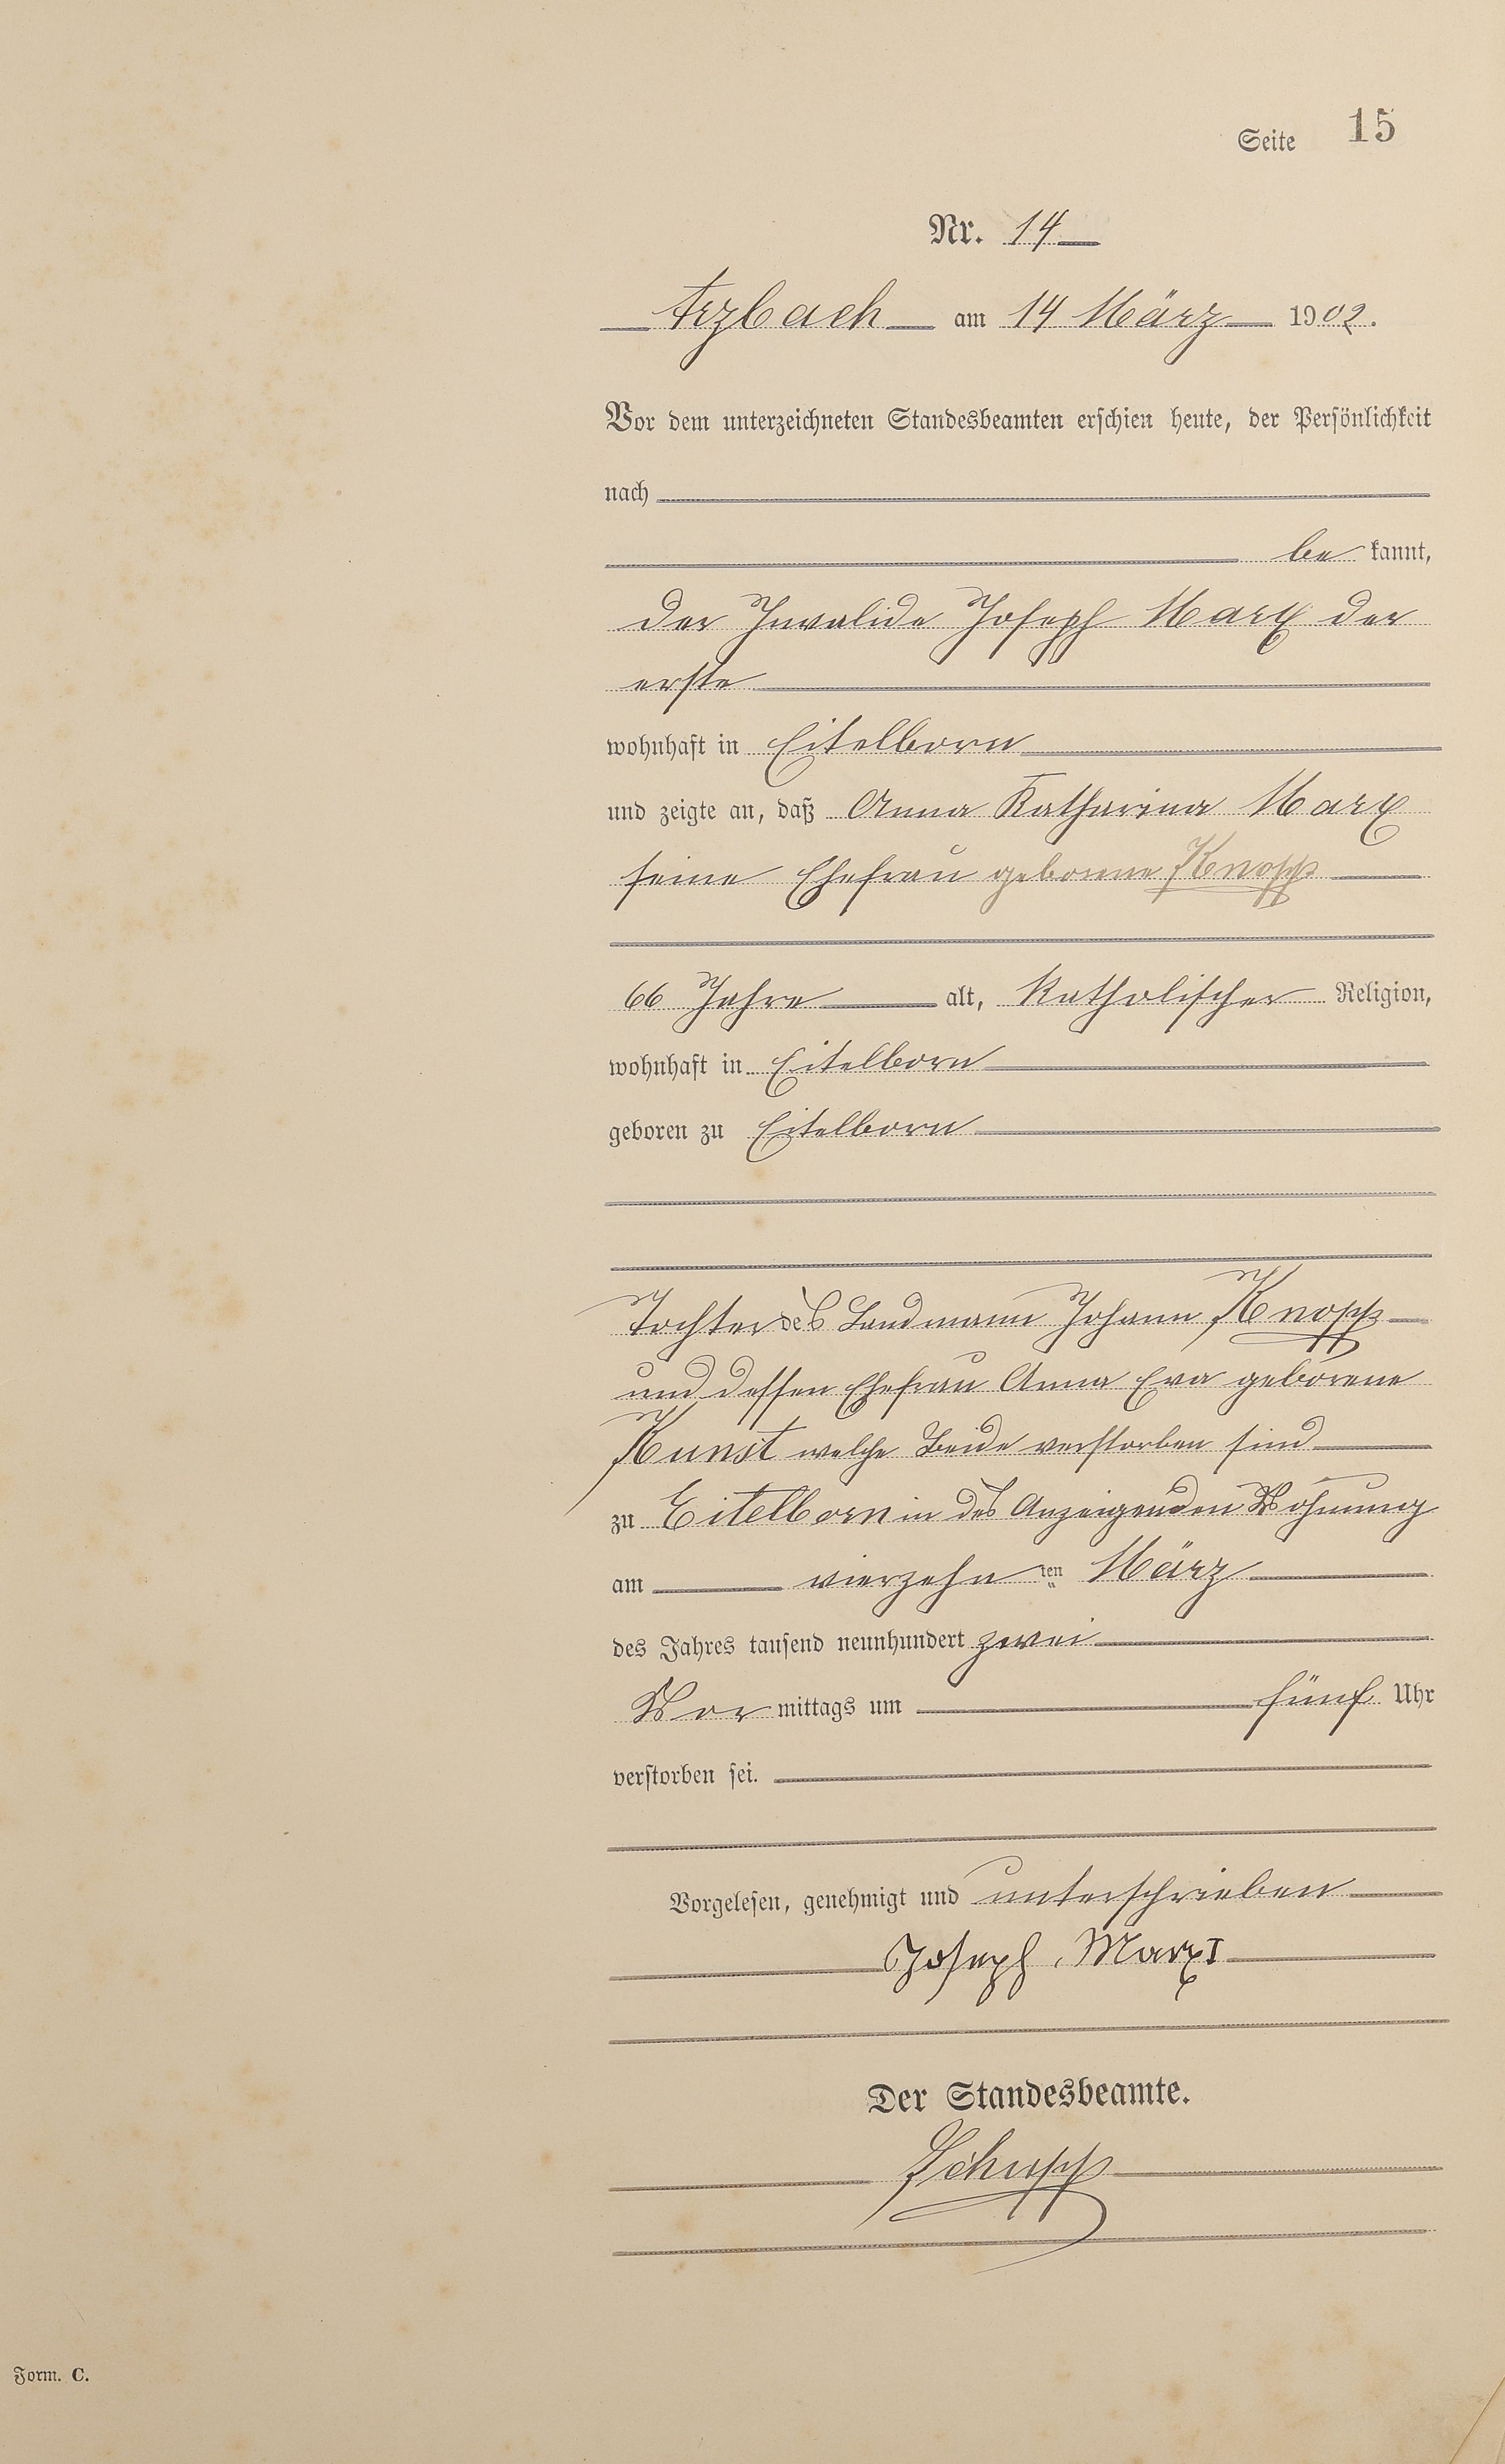 Seite 15
Nr. 14
Arzbach am 14 März 1902.
Vor dem unterzeichneten Standesbeamten erschien heute, der Persönlichkeit
nach
be kannt,
der Invalide Joseph Marx der
erste
wohnhaft in Eitelborn
und zeigte an, daß Anna Katharina Marx
seine Ehefrau geborene Knopp
66 Jahre alt, Katholischer Religion,
wohnhaft in Eitelborn
geboren zu Eitelborn
Tochter des Landmann Johann Knopp
und dessen Ehefrau Anna Eva geborene
Kunst welche Beide verstorben sind
zu Eitelborn in des Anzeigenden Wohnung
am vierzehn ten März
des Jahres tausend neunhundert zwei
Vor mittags um fünf Uhr
verstorben sei.
Vorgelesen, genehmigt und unterschrieben
Joseph Marx I
Der Standesbeamte.
Schupp
Form. C.